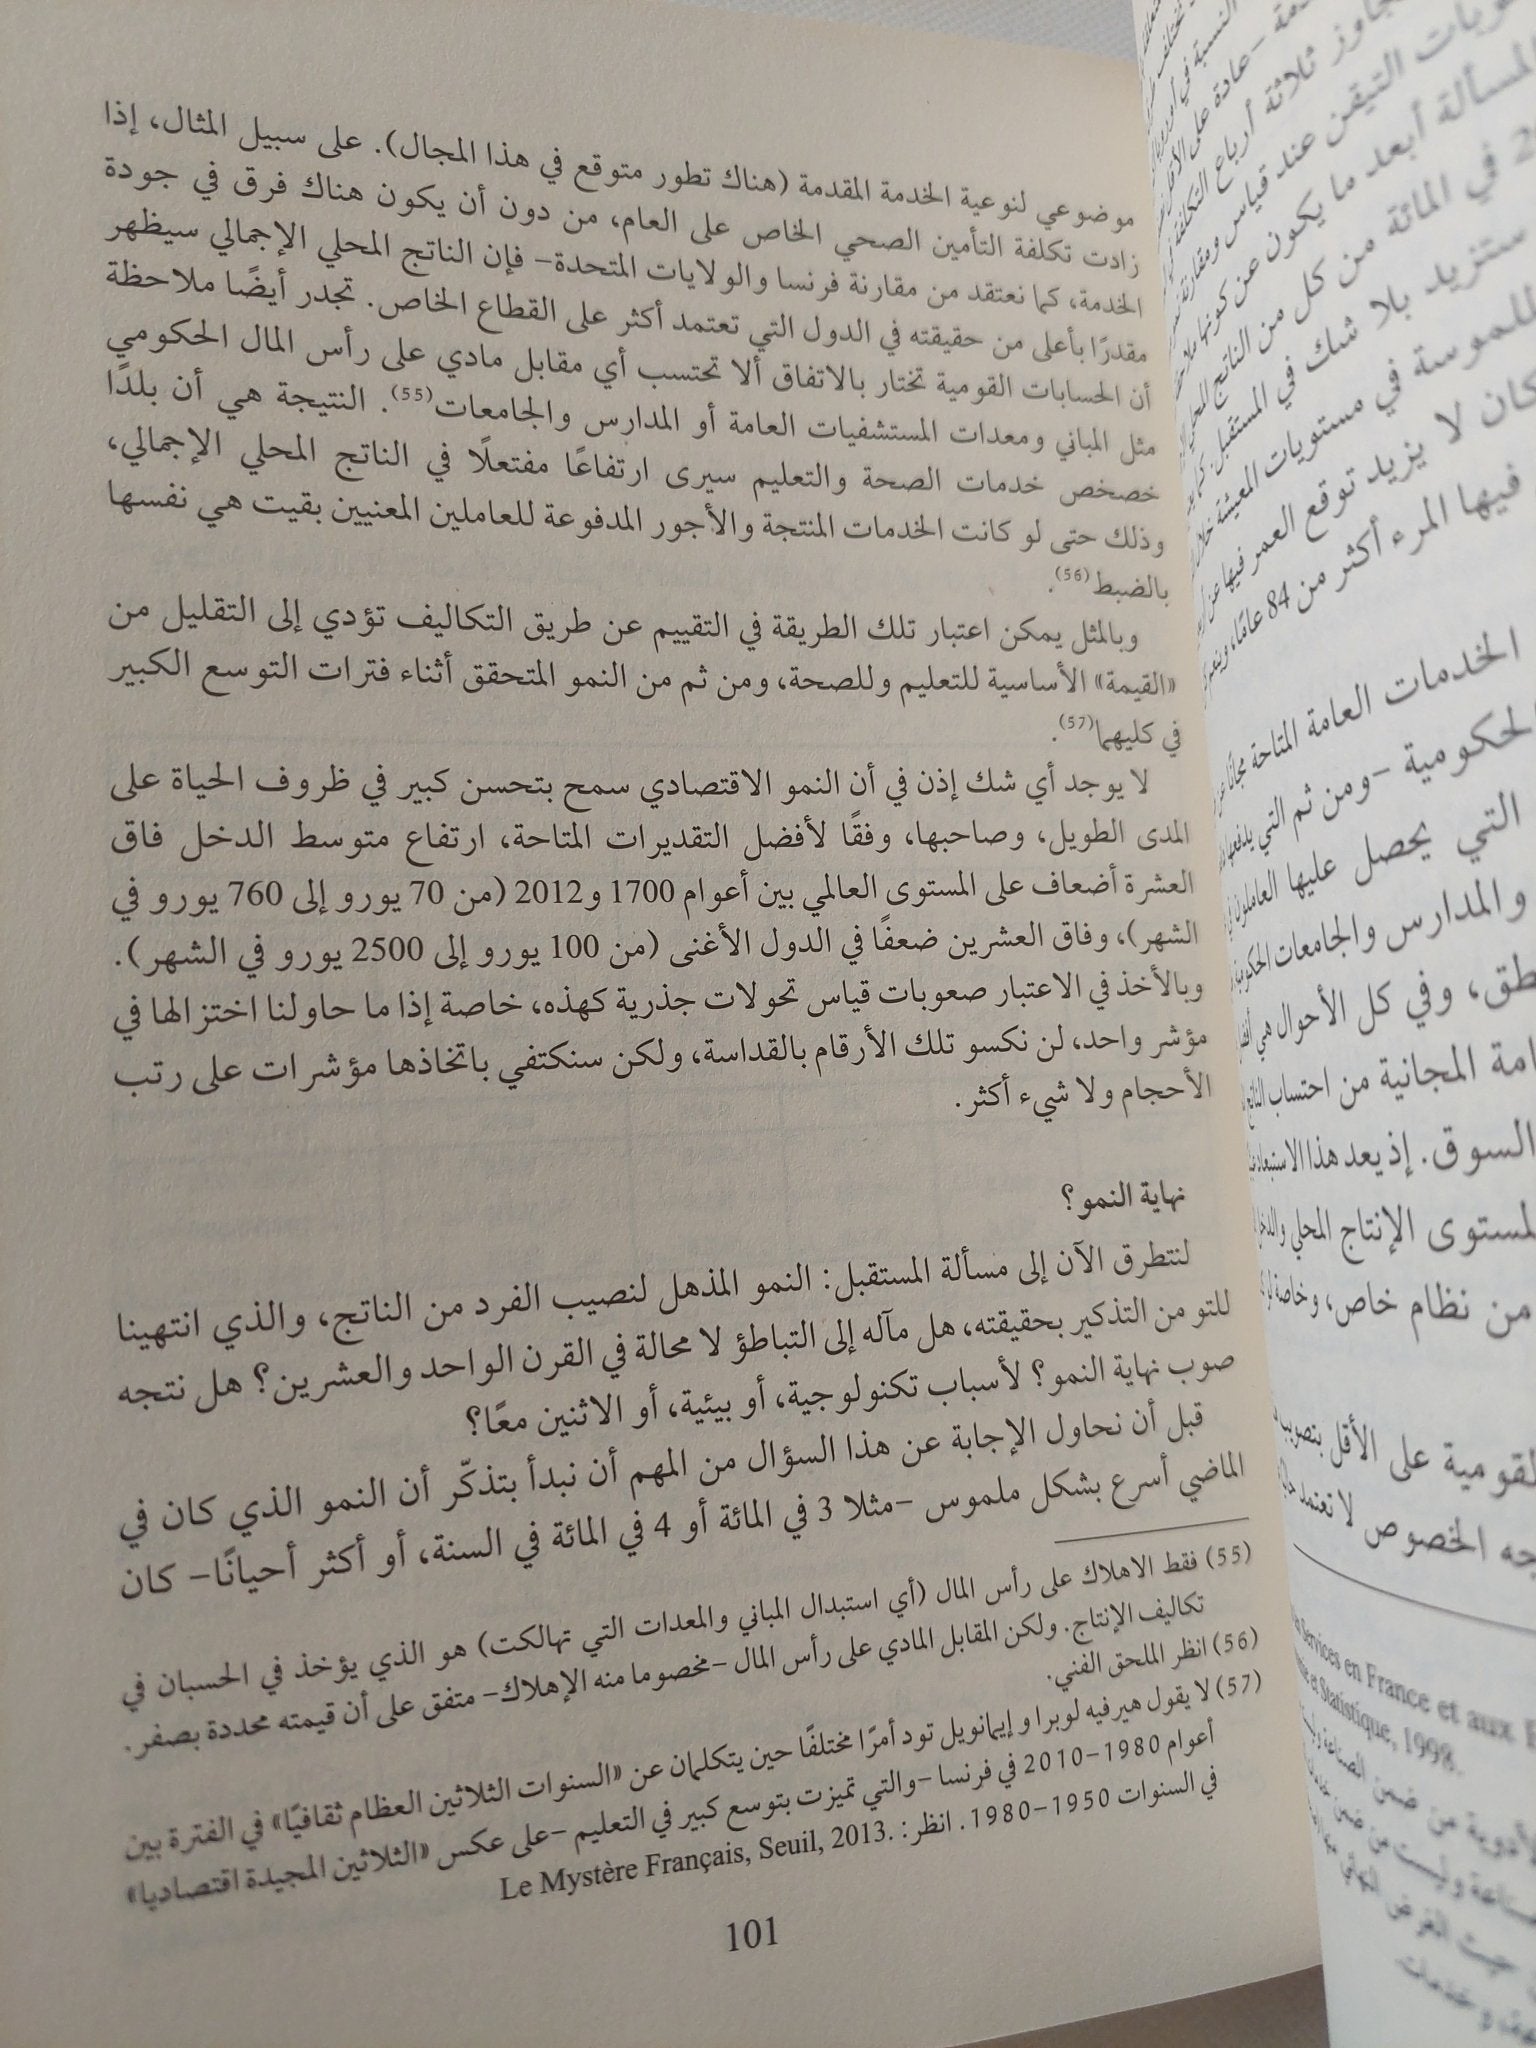 موضوعي لنوعية الخدمة المقدمة (هناك تطور متوقع في هذا المجال). على سبيل المثال، إذا
زادت تكلفة التأمين الصحي الخاص على العام، من دون أن يكون هناك فرق في جودة
الخدمة، كما نعتقد من مقارنة فرنسا والولايات المتحدة– فإن الناتج المحلي الإجمالي سيظهر
مقدرًا بأعلى من حقيقته في الدول التي تعتمد أكثر على القطاع الخاص. تجدر أيضًا ملاحظة
أن الحسابات القومية تختار بالاتفاق ألا تحتسب أي مقابل مادي على رأس المال الحكومي
مثل المباني ومعدات المستشفيات العامة أو المدارس والجامعات(55). النتيجة هي أن بلدًا
خصخص خدمات الصحة والتعليم سيرى ارتفاعًا مفتعلًا في الناتج المحلي الإجمالي،
وذلك حتى لو كانت الخدمات المنتجة والأجور المدفوعة للعاملين المعنيين بقيت هي نفسها
بالضبط(56).
وبالمثل يمكن اعتبار تلك الطريقة في التقييم عن طريق التكاليف تؤدي إلى التقليل من
«القيمة» الأساسية للتعليم وللصحة، ومن ثم من النمو المتحقق أثناء فترات التوسع الكبير
في كليهما(57).
لا يوجد أي شك إذن في أن النمو الاقتصادي سمح بتحسن كبير في ظروف الحياة على
المدى الطويل، وصاحبها، وفقًا لأفضل التقديرات المتاحة، ارتفاع متوسط الدخل فاق
العشرة أضعاف على المستوى العالمي بين أعوام 1700 و2012 (من 70 يورو إلى 760 يورو في
الشهر)، وفاق العشرين ضعفًا في الدول الأغنى (من 100 يورو إلى 2500 يورو في الشهر).
وبالأخذ في الاعتبار صعوبات قياس تحولات جذرية كهذه، خاصة إذا ما حاولنا اختزالها في
مؤشر واحد، لن نكسو تلك الأرقام بالقداسة، ولكن سنكتفي باتخاذها مؤشرات على رتب
الأحجام ولا شيء أكثر.
نهاية النمو؟
لنتطرق الآن إلى مسألة المستقبل: النمو المذهل لنصيب الفرد من الناتج، والذي انتهينا
للتو من التذكير بحقيقته، هل مآله إلى التباطؤ لا محالة في القرن الواحد والعشرين؟ هل نتجه
صوب نهاية النمو؟ لأسباب تكنولوجية، أو بيئية، أو الاثنين معًا؟
قبل أن نحاول الإجابة عن هذا السؤال من المهم أن نبدأ بتذكّر أن النمو الذي كان في
الماضي أسرع بشكل ملموس –مثلا 3 في المائة أو 4 في المائة في السنة، أو أكثر أحيانًا– كان
(55) فقط الاهلاك على رأس المال (أي استبدال المباني والمعدات التي تهالكت) هو الذي يؤخذ في الحسبان في
تكاليف الإنتاج. ولكن المقابل المادي على رأس المال –مخصوما منه الإهلاك– متفق على أن قيمته محددة بصفر.
(56) انظر الملحق الفني.
(57) لا يقول هيرفيه لوبرا و إيمانويل تود أمرًا مختلفًا حين يتكلمان عن «السنوات الثلاثين العظام ثقافيًا» في الفترة بين
أعوام 1980–2010 في فرنسا –والتي تميزت بتوسع كبير في التعليم –على عكس «الثلاثين المجيدة اقتصاديا»
في السنوات 1950–1980. انظر: Le Mystère Français, Seuil, 2013.
101
دمة –عادة على الأقل
جاوز ثلاثة أرباع التكلفة
وبات التيقن عند قياس ومقارنة
المسألة أبعد ما يكون عن كونها
2 في المائة من كل من الناتج المحلي
ستزيد بلا شك في المستقبل. كما
لملموسة في مستويات المعيشة خلال
كان لا يزيد توقع العمر فيها عن
فيها المرء أكثر من 84 عامًا،
الخدمات العامة المتاحة مجانًا
لحكومية –ومن ثم التي يدفعها
التي يحصل عليها العاملون
والمدارس والجامعات الحكومية
طق، وفي كل الأحوال هي
امة المجانية من احتساب الناتج
السوق. إذ يعد هذا الاستبعاد
لمستوى الإنتاج المحلي والدخل
من نظام خاص، وخاصة
لقومية على الأقل
جه الخصوص لا تعتمد
Services en France et aux
et Statistique, 1998.
لأدوية من ضمن الصناعة
صناعة وليست من ضمن